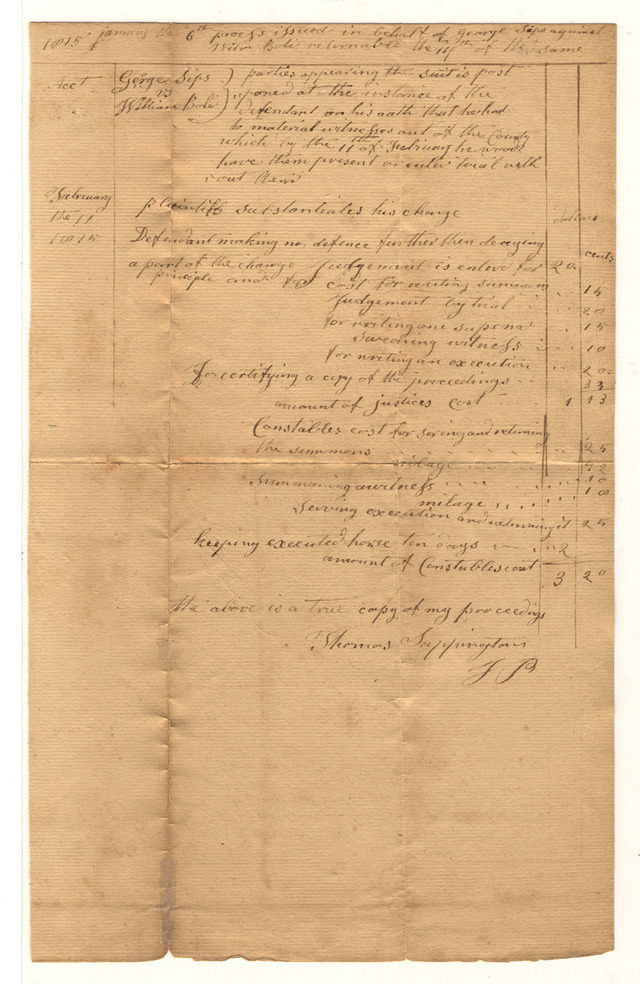 1815 january the 6th process issued in behalf of George Sips against
Wilm Boli returnable the 14th of the same
Gorge Sips ) parties appearing the suit is post
vs ) uponed at the instance of the
William Boli ) defendant on his oath that he had
to material witnesses out of the County
which by the 11th of February he would
have them present or enter trial with
out them
February
the 11 plaintiff substantiates his charge dollars
1815 Defendant making no defence further then denying cents
a part of the charge Judgement is entered for 20
principle and cost for writing summons 15
Judgement by trial 20
for writing one supena 15
Swearing witness 10
for writing an execution 20
For certifying a copy of the proceedings 33
amount of justices cost 1 13
Constables cost for serving and returning
the summons 25
milage
Summoning a witness
milage
Serving execution and returning it 25
keeping executed horse ten days 2
amount of Constables cost 3 20
the above is a true copy of my proceedings
Thomas Sappington
J P